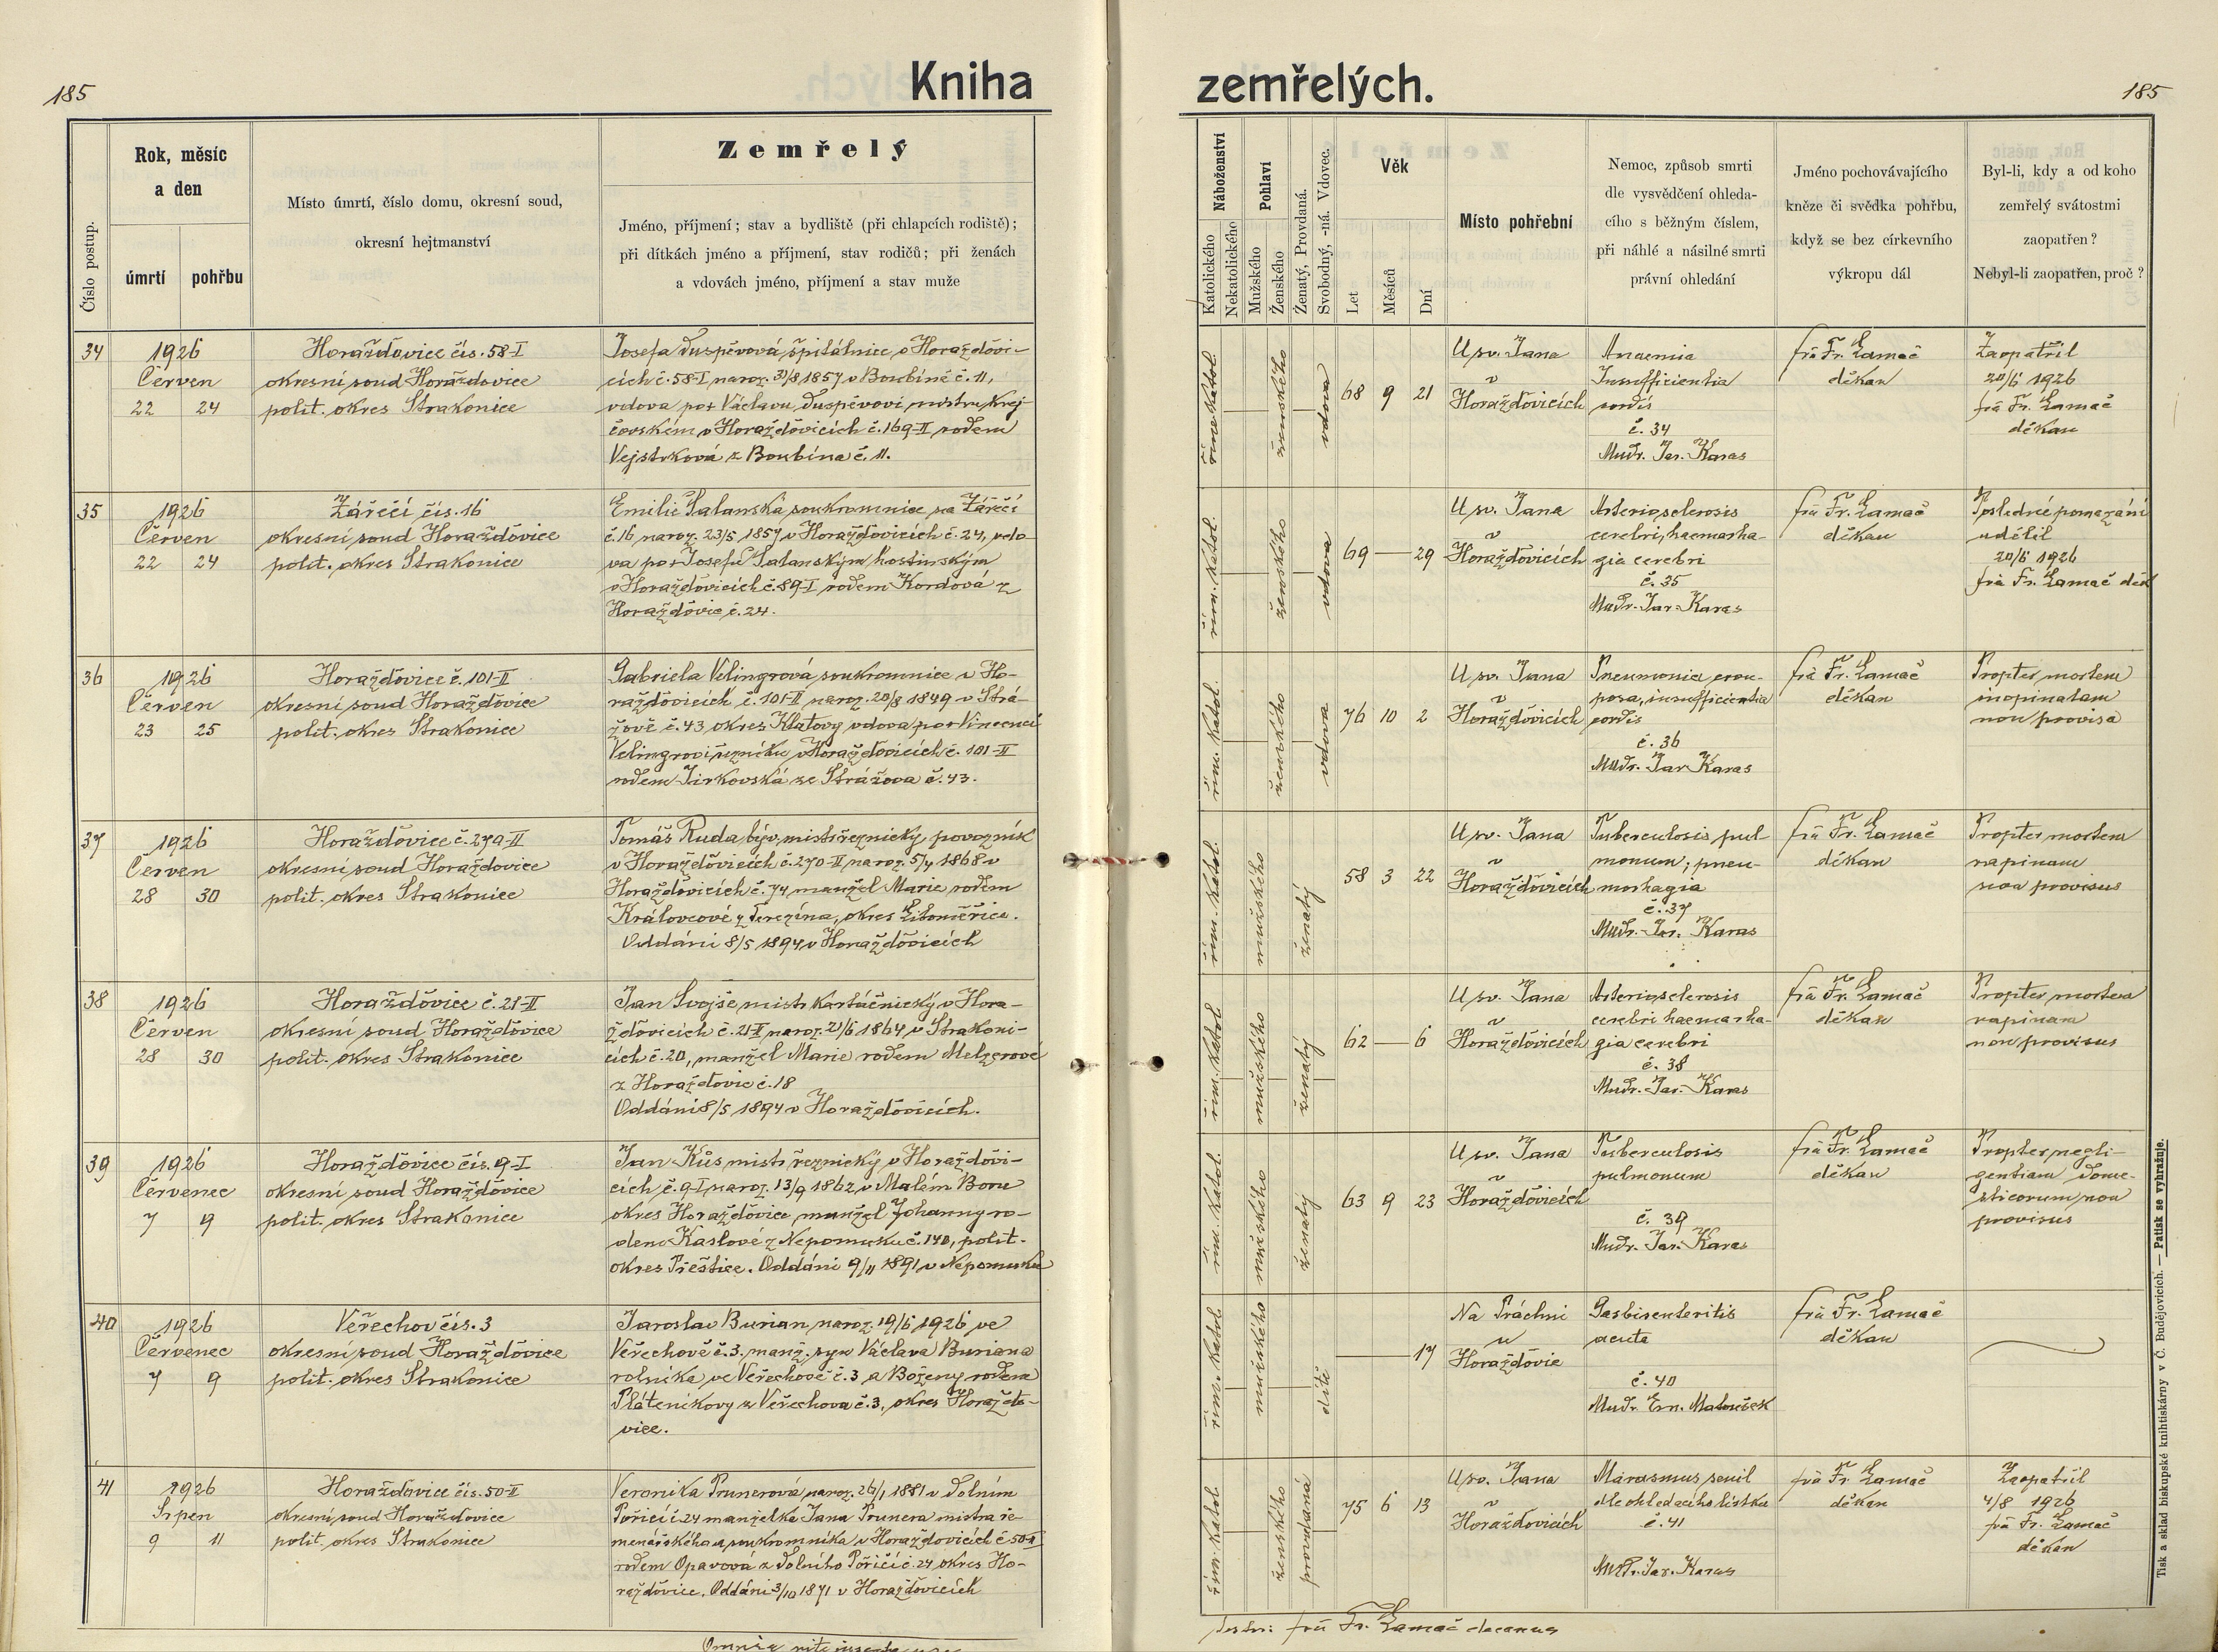 185
Kniha
zemřelých.
185
Číslo postup.
Rok, měsíc
a den
úmrtí
pohřbu
Místo úmrtí, číslo domu, okresní soud,
okresní hejtmanství
Zemřelý
Jméno, příjmení; stav a bydliště (při chlapcích rodiště);
při dítkách jméno a příjmení, stav rodičů; při ženách
a vdovách jméno, příjmení a stav muže
Náboženství
Katolického
Nekatolického
Pohlaví
Mužského
Ženského
Ženatý, Provdaná.
Svobodný, -ná. Vdovec.
Věk
Let
Měsíců
Dní
Místo pohřební
Nemoc, způsob smrti
dle vysvědčení ohleda-
cího s běžným číslem,
při náhlé a násilné smrti
právní ohledání
Jméno pochovávajícího
kněze či svědka pohřbu,
když se bez církevního
výkropu dál
Byl-li, kdy a od koho
zemřelý svátostmi
zaopatřen?
Nebyl-li zaopatřen, proč?
34
1926
Červen
22 24
Horažďovice čís. 58-I
okresní soud Horažďovice
polit. okres Strakonice
Josefa Duspěvová, špitálnice v Horažďovi-
cích č. 58-I naroz. 31/8 1857 v Boubíně č. 11,
vdova po † Václavu Duspěvovi mistru krej-
čovském v Horažďovicích č. 169-II rodem
Vejstrková z Boubína č. 11.
řím. katol.
ženského
vdova
68 9 21
U sv. Jana
v
Horažďovicích
Anaemia
Insufficientia
cordis
č. 34
Mudr. Jar. Karas
frà Fr. Lamač
děkan
Zaopatřil
20/6 1926
frà Fr. Lamač
děkan
35
1926
Červen
22 24
Zářečí čís. 16
okresní soud Horažďovice
polit. okres Strakonice
Emilie Salanská soukromnice na Zářečí
č. 16 naroz. 23/5 1857 v Horažďovicích č. 24, vdo-
va po † Josefu Salanským hostinským
v Horažďovicích č. 89-I rodem Kordová z
Horažďovic č. 24.
řím. katol.
ženského
vdova
69 — 29
U sv. Jana
v
Horažďovicích
Arteriosclerosis
cerebri, haemorha-
gia cerebri
č. 35
Mudr. Jar. Karas
frà Fr. Lamač
děkan
Poslední pomazání
udělil
20/6 1926
frà Fr. Lamač děk
36
1926
Červen
23 25
Horažďovice č. 101-II
okresní soud Horažďovice
polit. okres Strakonice
Gabriela Velingrová soukromnice v Ho-
ražďovicích č. 101-II naroz. 20/8 1849 v Strá-
žově č. 43 okres Klatovy vdova po † Vincenci
Velingrovi řezníku v Horažďovicích č. 101-II
rodem Jirkovská ze Strážova č. 43.
řím. katol.
ženského
vdova
76 10 2
U sv. Jana
v
Horažďovicích
Pneumonia crou-
posa, insufficientia
cordis
č. 36
Mudr. Jar. Karas
frà Fr. Lamač
děkan
Propter mortem
inopinatam
non provisa
37
1926
Červen
28 30
Horažďovice č. 270-II
okresní soud Horažďovice
polit. okres Strakonice
Tomáš Ruda býv. mistr řeznický, povozník
v Horažďovicích č. 270-II naroz. 5/4 1868 v
Horažďovicích č. 74 manžel Marie rodem
Královcové z Terezína, okres Litoměřice.
Oddáni 8/5 1894 v Horažďovicích
řím. katol.
mužského
ženatý
58 3 22
U sv. Jana
v
Horažďovicích
Tuberculosis pul-
monum; pneu-
morhagia
č. 37
Mudr. Jar. Karas
frà Fr. Lamač
děkan
Propter mortem
rapinam
non provisus
38
1926
Červen
28 30
Horažďovice č. 21-II
okresní soud Horažďovice
polit. okres Strakonice
Jan Svojše mistr kartáčnický v Hora-
žďovicích č. 21-II naroz. 21/6 1864 v Strakoni-
cích č. 20, manžel Marie rodem Melzerové
z Horažďovic č. 18
Oddáni 8/5 1894 v Horažďovicích.
řím. katol.
mužského
ženatý
62 — 6
U sv. Jana
v
Horažďovicích
Arteriosclerosis
cerebri haemorha-
gia cerebri
č. 38
Mudr. Jar. Karas
frà Fr. Lamač
děkan
Propter mortem
rapinam
non provisus
39
1926
Červenec
7 9
Horažďovice čís. 9-I
okresní soud Horažďovice
polit. okres Strakonice
Jan Kůs mistr řeznický v Horažďovi-
cích č. 9-I naroz. 13/9 1862 v Malém Boru
okres Horažďovice, manžel Johanny ro-
dem Kaslové z Nepomuku č. 140, polit.
okres Přeštice. Oddáni 9/11 1891 v Nepomuku
řím. katol.
mužského
ženatý
63 9 23
U sv. Jana
v
Horažďovicích
Tuberculosis
pulmonum
č. 39
Mudr. Jar. Karas
frà Fr. Lamač
děkan
Propter negli-
gentiam dome-
sticorum non
provisus
40
1926
Červenec
7 9
Veřechov čís. 3
okresní soud Horažďovice
polit. okres Strakonice
Jaroslav Burian naroz. 19/6 1926 ve
Veřechově č. 3. manž. syn Václava Buriana
rolníka ve Veřechově č. 3 a Boženy rodem
Pláteníkovy z Veřechova č. 3, okres Horažďo-
vice.
řím. katol.
mužského
dítě
— 17
Na Práchni
u
Horažďovic
Gastroenteritis
acuta
č. 40
Mudr. Ern. Matoušek
frà Fr. Lamač
děkan
41
1926
Srpen
9 11
Horažďovice čís. 50-II
okresní soud Horažďovice
polit. okres Strakonice
Veronika Prunerová naroz. 26/1 1851 v Dolním
Poříčí č. 24 manželka Jana Prunera mistra ře-
menářského a soukromníka v Horažďovicích č. 50-II
rodem Opavová z Dolního Poříčí č. 24 okres Ho-
ražďovice. Oddáni 3/10 1871 v Horažďovicích
řím. katol.
ženského
provdaná
75 6 13
U sv. Jana
v
Horažďovicích
Marasmus senil
dle ohledacího lístku
č. 41
Mudr. Jar. Karas
frà Fr. Lamač
děkan
Zaopatřil
4/8 1926
frà Fr. Lamač
děkan
frà Fr. Lamač decanus
Omnia rite
Tisk a sklad biskupské knihtiskárny v Č. Budějovicích. — Patisk se vyhražuje.